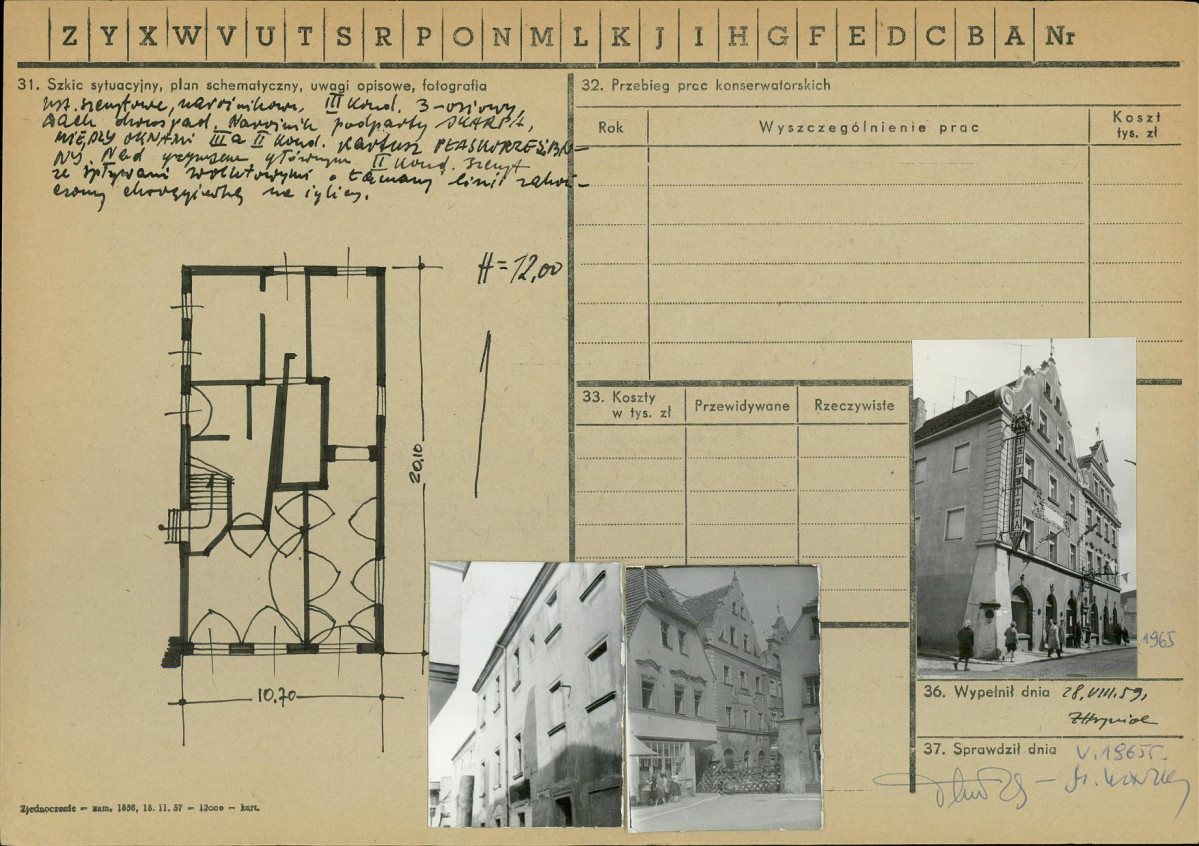 Z Y X W V U T S R P O N M L K J I H G F E D C B A Nr
31. Szkic sytuacyjny, plan schematyczny, uwagi opisowe, fotografia
szczytowe, narożnikowe. III kond. 3-osiowy,
Dach dwuspad. Narożnik podparty SKARPĄ,
MIĘDZY OKNAMI III a II kond. KARTUSZ PŁASKORZEŹBIO-
NY. Nad gzymsem głównym II kond. szczyt
ze spływami wolutowymi o łamanej linii zakoń-
czony chorągiewką na iglicy.
H=12,00
20,10
10,70
Zjednoczenie — zam. 1856, 18. 11. 57 — 12000 — kart.
32. Przebieg prac konserwatorskich
Rok
Wyszczególnienie prac
Koszt
tys. zł
33. Koszty
w tys. zł
Przewidywane
Rzeczywiste
1965
36. Wypełnił dnia 28.VIII.59,
37. Sprawdził dnia V.1965 r.